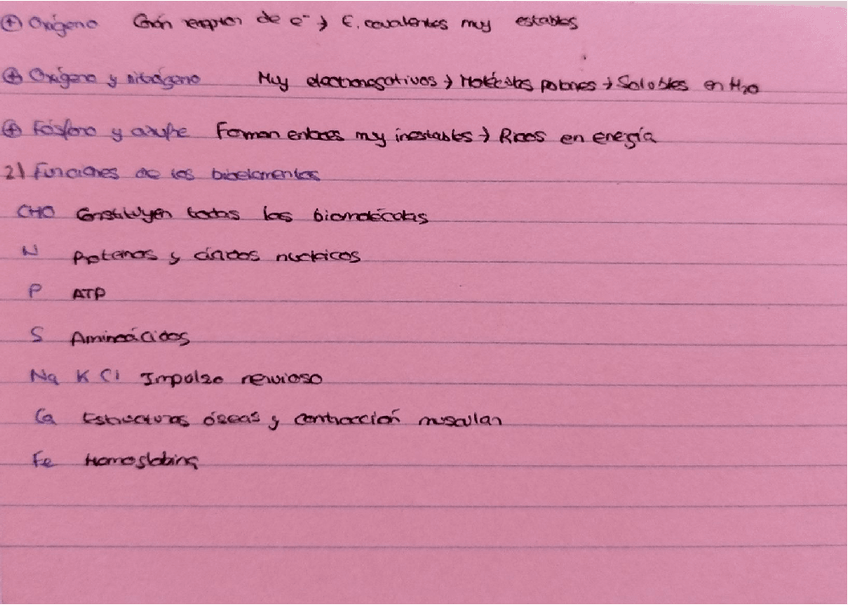 ⊕ Oxígeno Gran receptor de e⁻ → E. covalentes muy estables
⊕ Oxígeno y nitrógeno Muy electronegativos → Moléculas polares → Solubles en H₂O
⊕ Fósforo y azufre Forman enlaces muy inestables → Ricos en energía
2) Funciones de los bioelementos
CHO Constituyen todas las biomoléculas
N Proteínas y ácidos nucleicos
P ATP
S Aminoácidos
Na K Cl Impulso nervioso
Ca Estructuras óseas y contracción muscular
Fe Hemoglobina